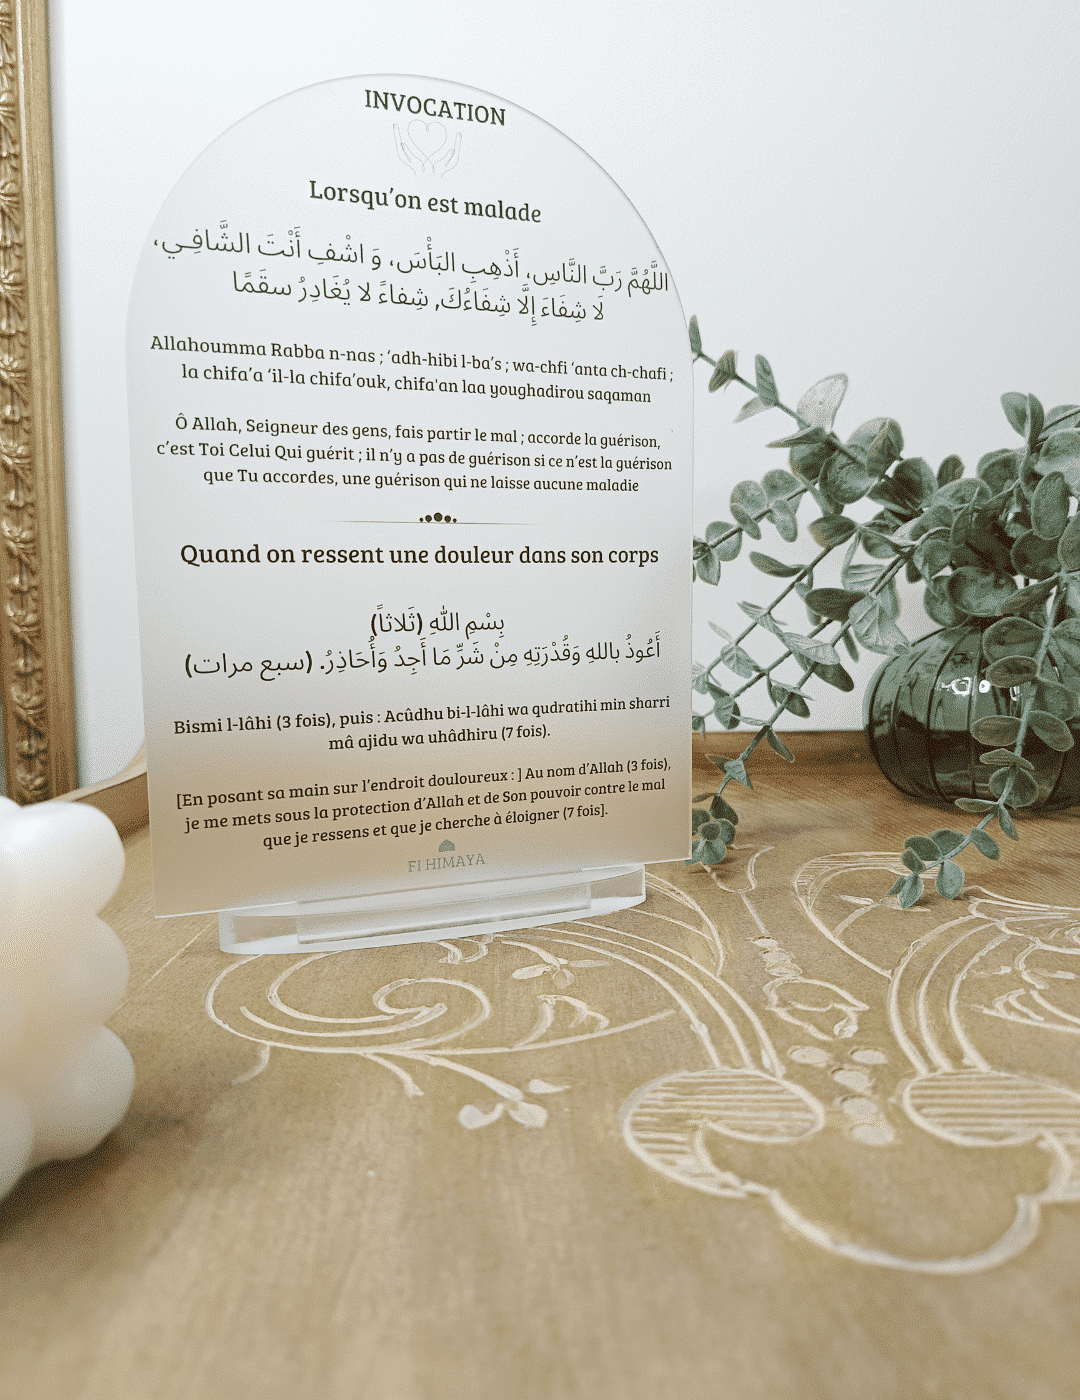 INVOCATION
Lorsqu'on est malade
اللَّهُمَّ رَبَّ النَّاسِ، أَذْهِبِ البَأْسَ، وَ اشْفِ أَنْتَ الشَّافِـي،
لَا شِفَاءَ إِلَّا شِفَاءُكَ, شِفاءً لا يُغَادِرُ سقَمًا
Allahoumma Rabba n-nas ; ‘adh-hibi l-ba’s ; wa-chfi ‘anta ch-chafi ;
la chifa’a ‘il-la chifa’ouk, chifa'an laa youghadirou saqaman
Ô Allah, Seigneur des gens, fais partir le mal ; accorde la guérison,
c’est Toi Celui Qui guérit ; il n’y a pas de guérison si ce n’est la guérison
que Tu accordes, une guérison qui ne laisse aucune maladie
Quand on ressent une douleur dans son corps
بِسْمِ اللَّهِ (ثَلاثاً)
أَعُوذُ باللهِ وَقُدْرَتِهِ مِنْ شَرِّ مَا أَجِدُ وَأُحَاذِرُ. (سبع مرات)
Bismi l-lâhi (3 fois), puis : Acûdhu bi-l-lâhi wa qudratihi min sharri
mâ ajidu wa uhâdhiru (7 fois).
[En posant sa main sur l’endroit douloureux : ] Au nom d’Allah (3 fois),
je me mets sous la protection d’Allah et de Son pouvoir contre le mal
que je ressens et que je cherche à éloigner (7 fois].
FI HIMAYA